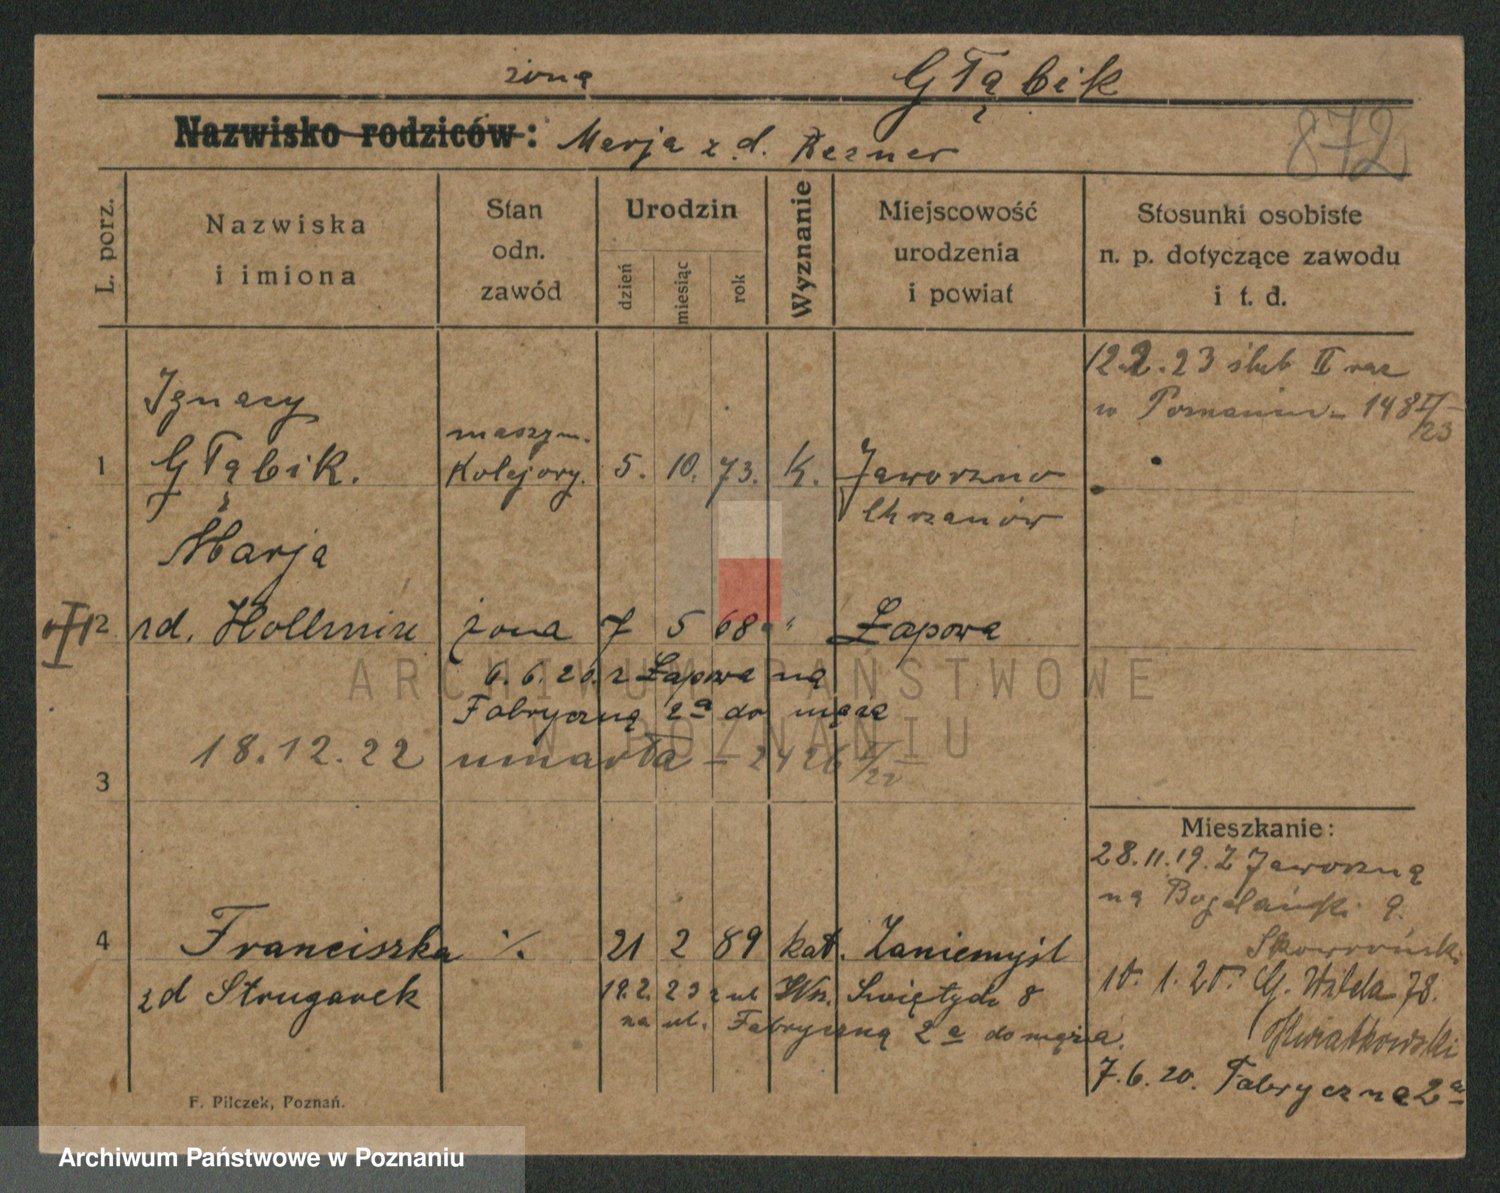 żoną Głąbik
Nazwisko rodziców: Marja z d. Rezner
872
L. porz.
Nazwiska
i imiona
Stan
odn.
zawód
Urodzin
dzień
miesiąc
rok
Wyznanie
Miejscowość
urodzenia
i powiat
Stosunki osobiste
n. p. dotyczące zawodu
i t. d.
12.2.23 ślub II raz
w Poznaniu - 148 II/23
Ignacy
1 Głąbik. maszyn. Kolejowy. 5. 10. 73. k. Jaworzno
Chrzanów
Marja
2 zd. Hollmix żona 7 5 68 " Łapowa
6.6.20. z Łapowa na
Fabryczną 2a do męża
3 18.12.22 umarła - 2426
Mieszkanie:
28.11.19. Z Jaworzna
na
Skowroński
10. 1. 20. G. Wilda 78.
Kwiatkowski
7.6.20. Fabryczna 2a
4 Franciszka ./. 21 2 89 kat. Zaniemyśl
zd Strugarek 19.2.23 z ul Wk. 8
na ul. Fabryczną 2a do męża.
F. Pilczek, Poznań.
ARCHIWUM PAŃSTWOWE
W POZNANIU
Archiwum Państwowe w Poznaniu